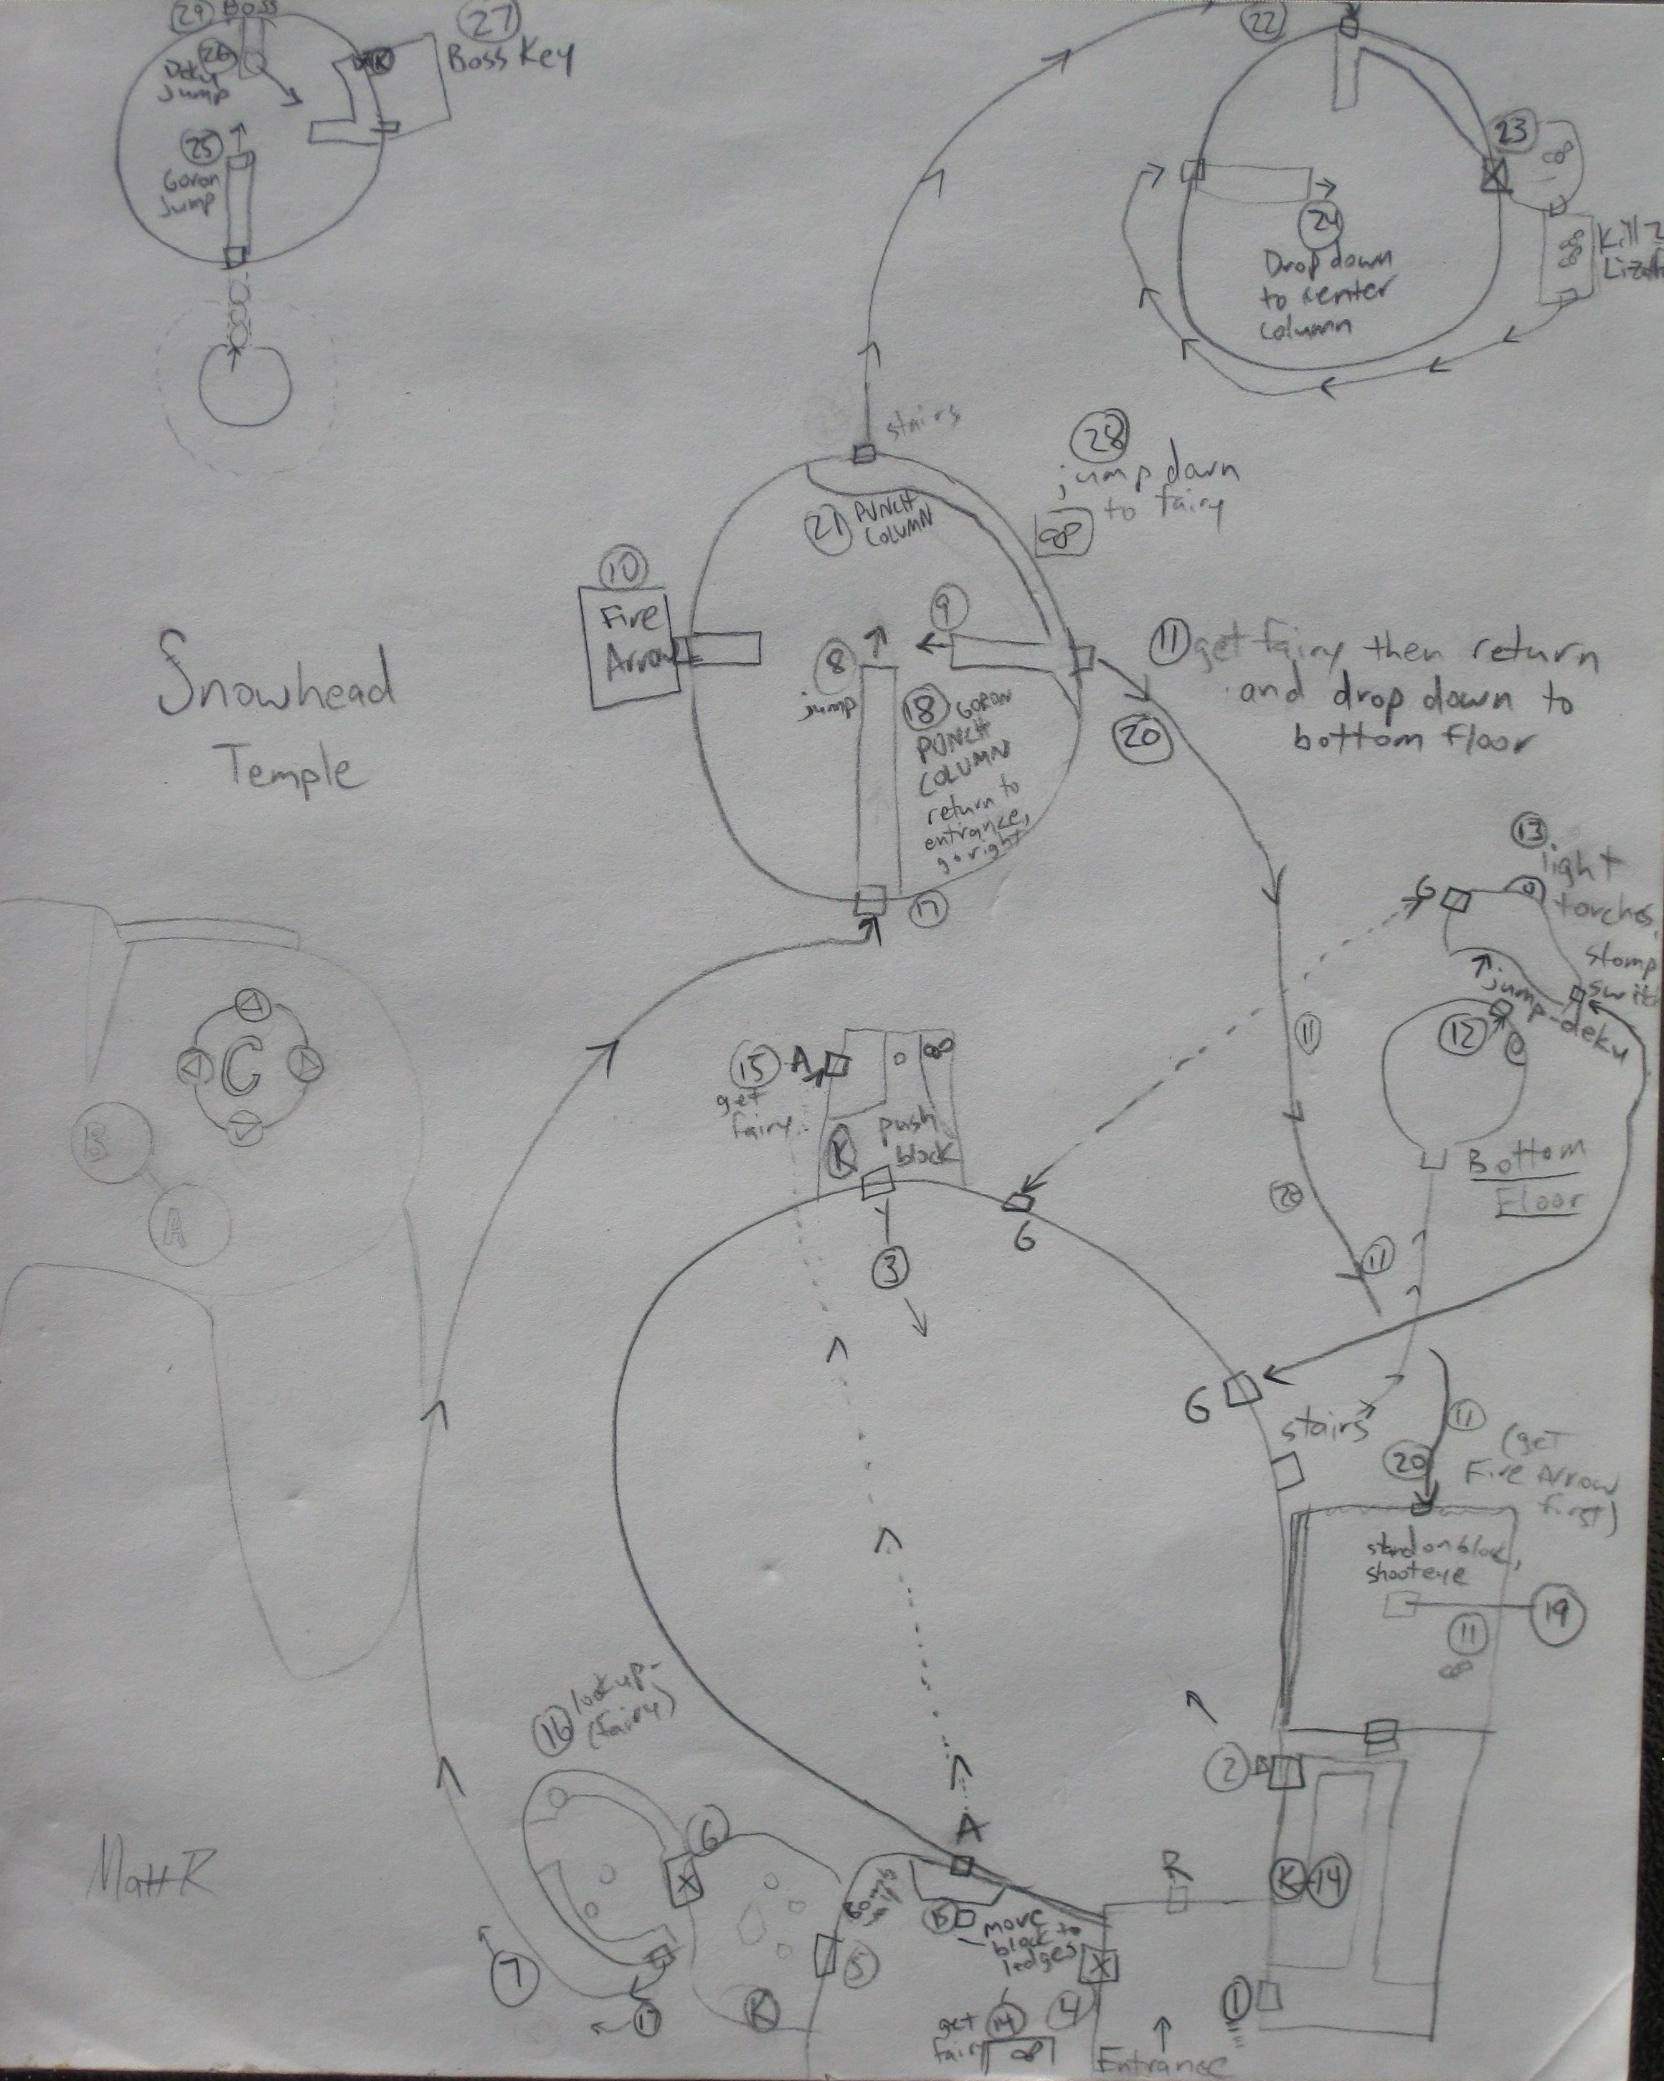 29 Boss
26
Deku
Jump
K
27
Boss Key
25
Goron
Jump
22
23
Kill 2
24
Drop down
to center
column
stairs
28
jump down
to fairy
21 PUNCH
COLUMN
10
Fire
Arrow
9
8
jump
18 GORON
PUNCH
COLUMN
return to
entrance,
go right
17
11 get fairy then return
and drop down to
bottom floor
20
Snowhead
Temple
13
light
torches,
stomp
G
jump-deku
12
Bottom
Floor
11
20
11
C
B
A
15 A
get
fairy
K
push
block
3
G
G
stairs
11
20
(get
Fire Arrow
first)
stand on block,
shoot eye
19
11
16 look up-
(fairy)
2
A
R
K 14
6
15
move
block to
ledges
5
K
7
17
4
1
get 14
fairy
Entrance
Matt R